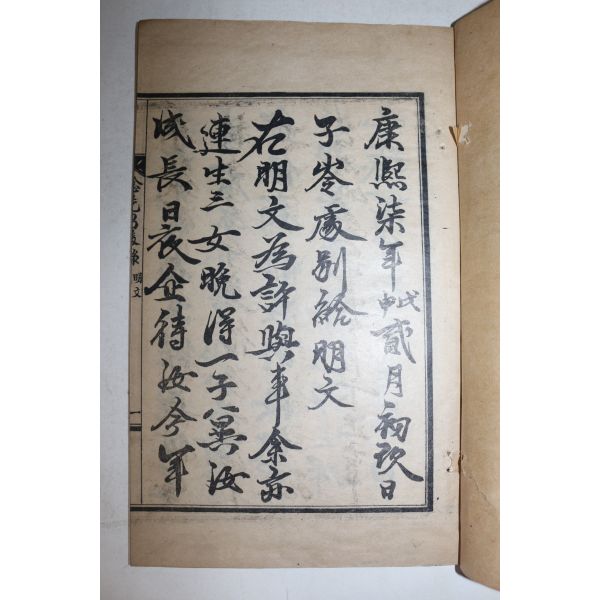 康熙柒年戊申貳月初玖日
子岺處別給明文
右明文為許與事余亦
連生三女晩得一子冀汝
成長日夜企待汝今年
明文